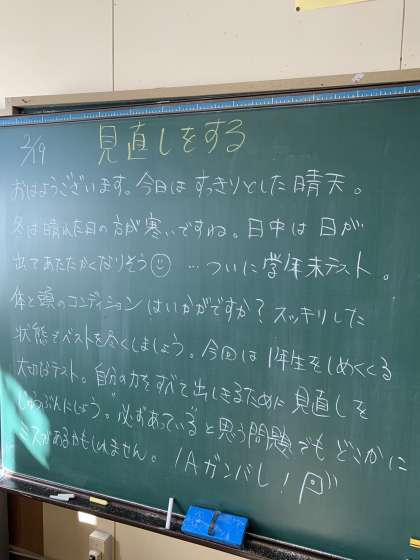 2/19 見直しをする
おはようございます。今日はすっきりとした晴天。
冬は晴れた日の方が寒いですね。日中は日が
出てあたたかくなりそう … ついに学年末テスト。
体と頭のコンディションはいかがですか？スッキリした
状態でベストを尽くしましょう。今回は1年生をしめくくる
大切なテスト。自分の力をすべて出しきるために見直しを
じゅうぶんにしよう。必ずあっていると思う問題でもどこかに
ミスがあるかもしれません。1Aガンバレ！